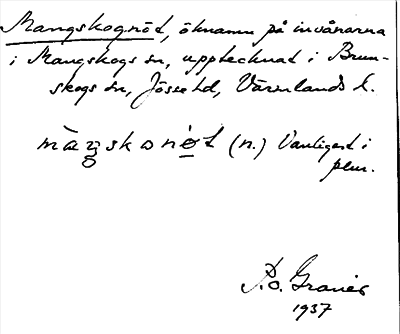 Mangskognöt, öknamn på invånarna
i Mangskogs sn, upptecknat i Brun-
skogs sn, Jösse hd, Värmlands l.
(n.) Vanligast i
plur.
P.O. Graner
1937